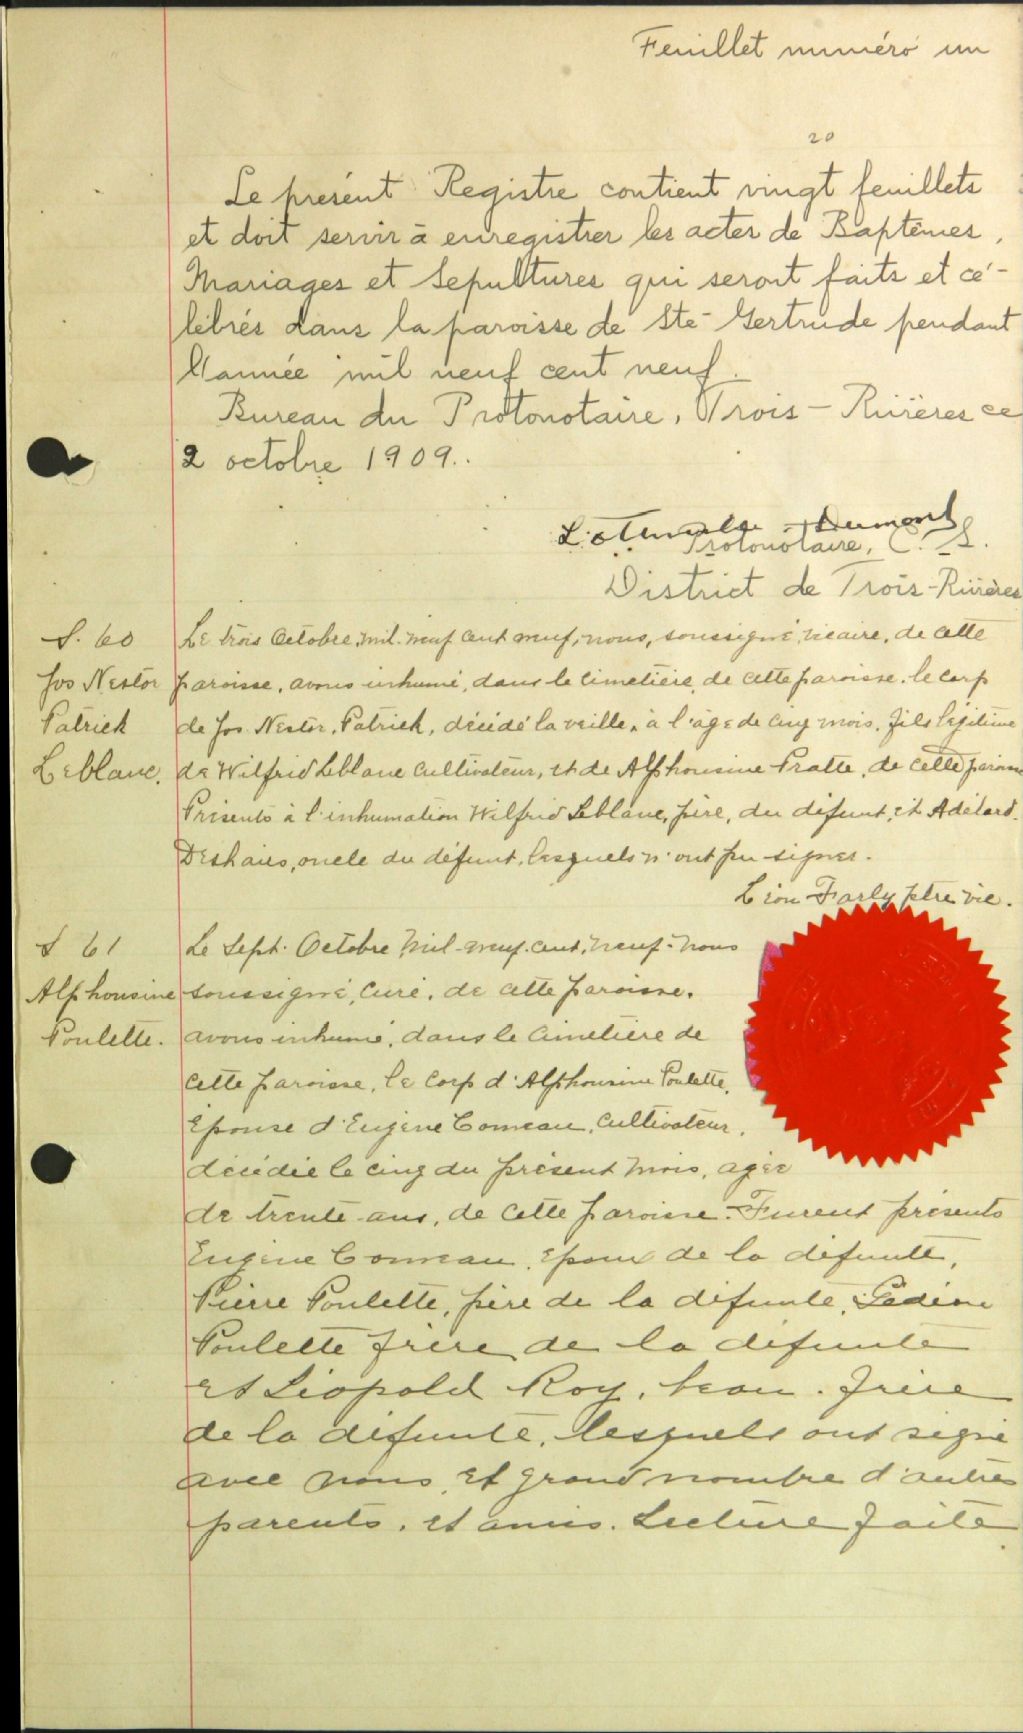 Feuillet numéro un
20
Le présent Registre contient vingt feuillets
et doit servir à enregistrer les actes de Baptêmes,
Mariages et Sepultures qui seront faits et cé-
lébrés dans la paroisse de Ste-Gertrude pendant
l'année mil neuf cent neuf.
Bureau du Protonotaire, Trois-Rivières ce
2 octobre 1909.
Dumont
Protonotaire, C. S.
District de Trois-Rivières
S. 60
Jos Nestor
Patrick
Leblanc.
Le trois Octobre, mil-neuf cent neuf, nous, soussigné, vicaire, de cette
paroisse, avons inhumé, dans le cimetière, de cette paroisse, le corp
de Jos. Nestor, Patrick, décédé la veille, à l'âge de cinq mois, fils légitime
de Wilfrid Leblanc cultivateur, et de Alphonsine Pratte, de cette paroisse
Présents à l'inhumation Wilfrid Leblanc, père, du défunt, et Adélard
Deshaies, oncle du défunt, lesquels n'ont pu signer.
Léon Farly ptre vic.
S 61
Alphonsine
Poulette.
Le Sept. Octobre, mil-neuf-cent, neuf-nous
soussigné, curé, de cette paroisse,
avons inhumé, dans le cimetière de
cette paroisse, le corp d'Alphonsine Poulette,
épouse d'Eugène Comeau, cultivateur,
décédée le cinq du présent mois, agée
de trente-ans, de cette paroisse. Furent présents
Eugène Comeau, époux de la défunte,
Pierre Poulette, père de la défunte, Gédéon
Poulette frère de la défunte
et Léopold Roy, beau-frère
de la défunte, lesquels ont signé
avec nous, et grand nombre d'autres
parents, et amis. Lecture faite